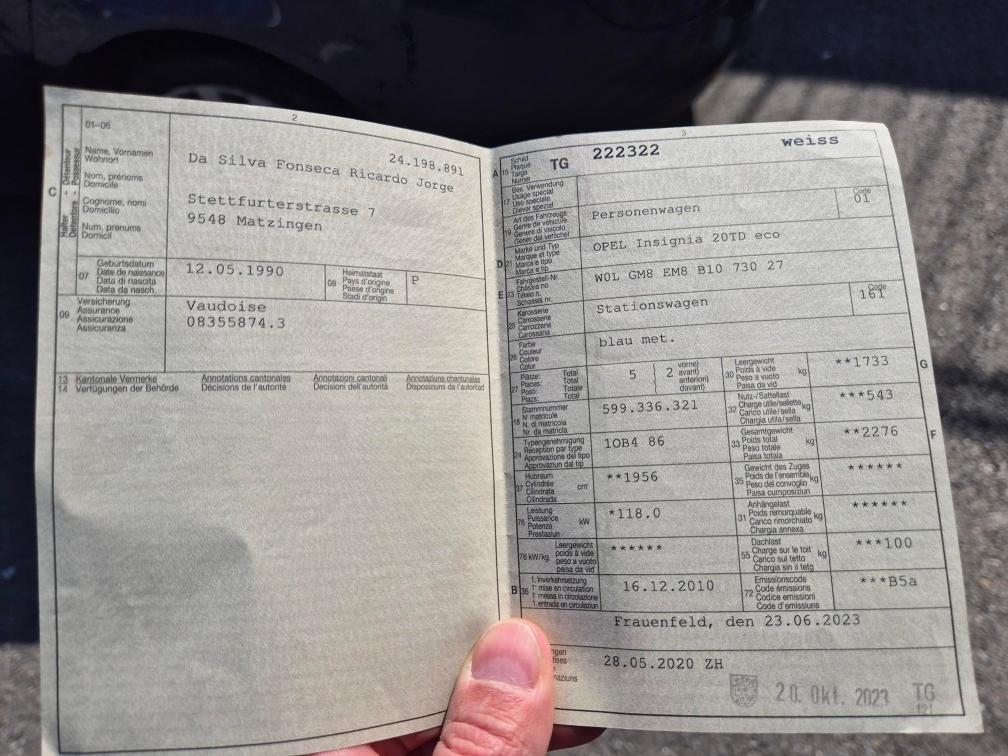 2
01-06
Halter - Détenteur
Detentore - Possessur
C
Name, Vornamen
Wohnort
Nom, prénoms
Domicile
Cognome, nomi
Domicilio
Num, prenums
Domicil
24.198.891
Da Silva Fonseca Ricardo Jorge
Stettfurterstrasse 7
9548 Matzingen
07
Geburtsdatum
Date de naissance
Data di nascita
Data da nasch.
12.05.1990
08
Heimatstaat
Pays d'origine
Paese d'origine
Stadi d'origin
P
09
Versicherung
Assurance
Assicurazione
Assicuranza
Vaudoise
08355874.3
13 Kantonale Vermerke Annotations cantonales Annotazioni cantonali Annotaziuns chantunalas
14 Verfügungen der Behörde Décisions de l'autorité Decisioni dell'autorità Disposiziuns da l'autoritad
3
A 15
Schild
Plaque
Targa
Numer
TG 222322 weiss
17
Bes. Verwendung
Usage spécial
Uso speciale
Diever spezial
19
Art des Fahrzeugs
Genre de véhicule
Genere di veicolo
Gener dal vehichel
Personenwagen
Code
01
D 21
Marke und Typ
Marque et type
Marca e tipo
Marca e tip
OPEL Insignia 20TD eco
E 23
Fahrgestell-Nr.
Châssis no
Telaio n.
Schassis nr.
W0L GM8 EM8 B10 730 27
25
Karosserie
Carrosserie
Carrozzeria
Carossaria
Stationswagen
Code
161
26
Farbe
Couleur
Colore
Colur
blau met.
27
Plätze: Total
Places: Total
Posti: Totale
Plazs: Total
5
2
vorne)
avant)
anteriori)
davant)
30
Leergewicht
Poids à vide
Peso a vuoto
Paisa da vid
kg
**1733
G
18
Stammnummer
N matricule
N. di matricola
Nr. da matricla
599.336.321
32
Nutz-/Sattellast
Charge utile/sellette
Carico utile/sella
Chargia utila/sella
kg
***543
24
Typengenehmigung
Réception par type
Approvazione del tipo
Approvaziun dal tip
1OB4 86
33
Gesamtgewicht
Poids total
Peso totale
Paisa totala
kg
**2276
F
37
Hubraum
Cylindrée
Cilindrata
Cilindrada
cm³
**1956
35
Gewicht des Zuges
Poids de l'ensemble
Peso del convoglio
Paisa cumposiziun
kg
******
76
Leistung
Puissance
Potenza
Prestaziun
kW
*118.0
31
Anhängelast
Poids remorquable
Carico rimorchiato
Chargia annexa
kg
******
78 kW/kg
Leergewicht
poids à vide
peso a vuoto
paisa da vid
******
55
Dachlast
Charge sur le toit
Carico sul tetto
Chargia sin il tetg
kg
***100
B 36
1. Inverkehrsetzung
1re mise en circulation
1a messa in circolazione
1. entrada en circulaziun
16.12.2010
72
Emissionscode
Code émissions
Codice emissioni
Code d'emissiuns
***B5a
Frauenfeld, den 23.06.2023
28.05.2020 ZH
20. Okt. 2023 TG
121